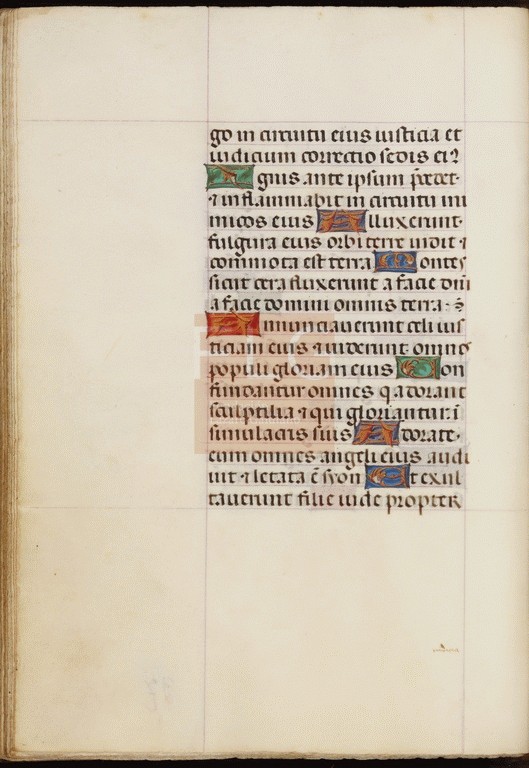 go in circuitu eius iusticia et
iudicium correctio sedis ei⁹
Ignis ante ipsum p̄cedet·
⁊ inflammabit in circuitu ini
micos eius Alluxerunt·
fulgura eius orbi terre uidit ⁊
commota est terra Montes
sicut cera fluxerunt a facie dñi
a facie domini omnis terra·
Annunciauerunt celi ius
ticiam eius ⁊ uiderunt omnes
populi gloriam eius Con
fundantur omnes q̇ adorant
sculptilia ⁊ qui gloriantur ī
simulacris suis Adorate·
eum omnes angeli eius audi
uit ⁊ letata ē syon Et exul
tauerunt filie iude propter